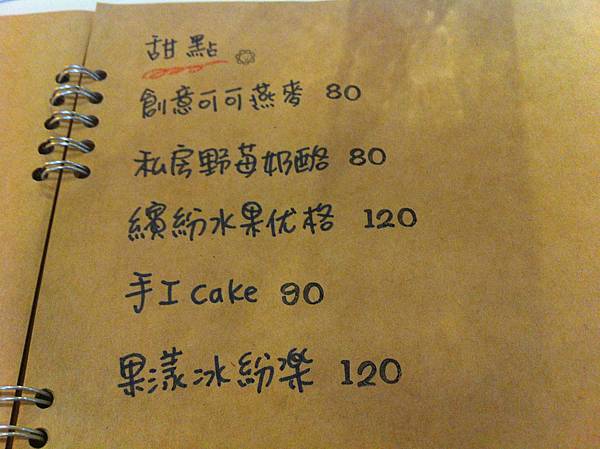 甜點
創意可可燕麥 80
私房野莓奶酪 80
繽紛水果优格 120
手工 Cake 90
果漾冰紛樂 120